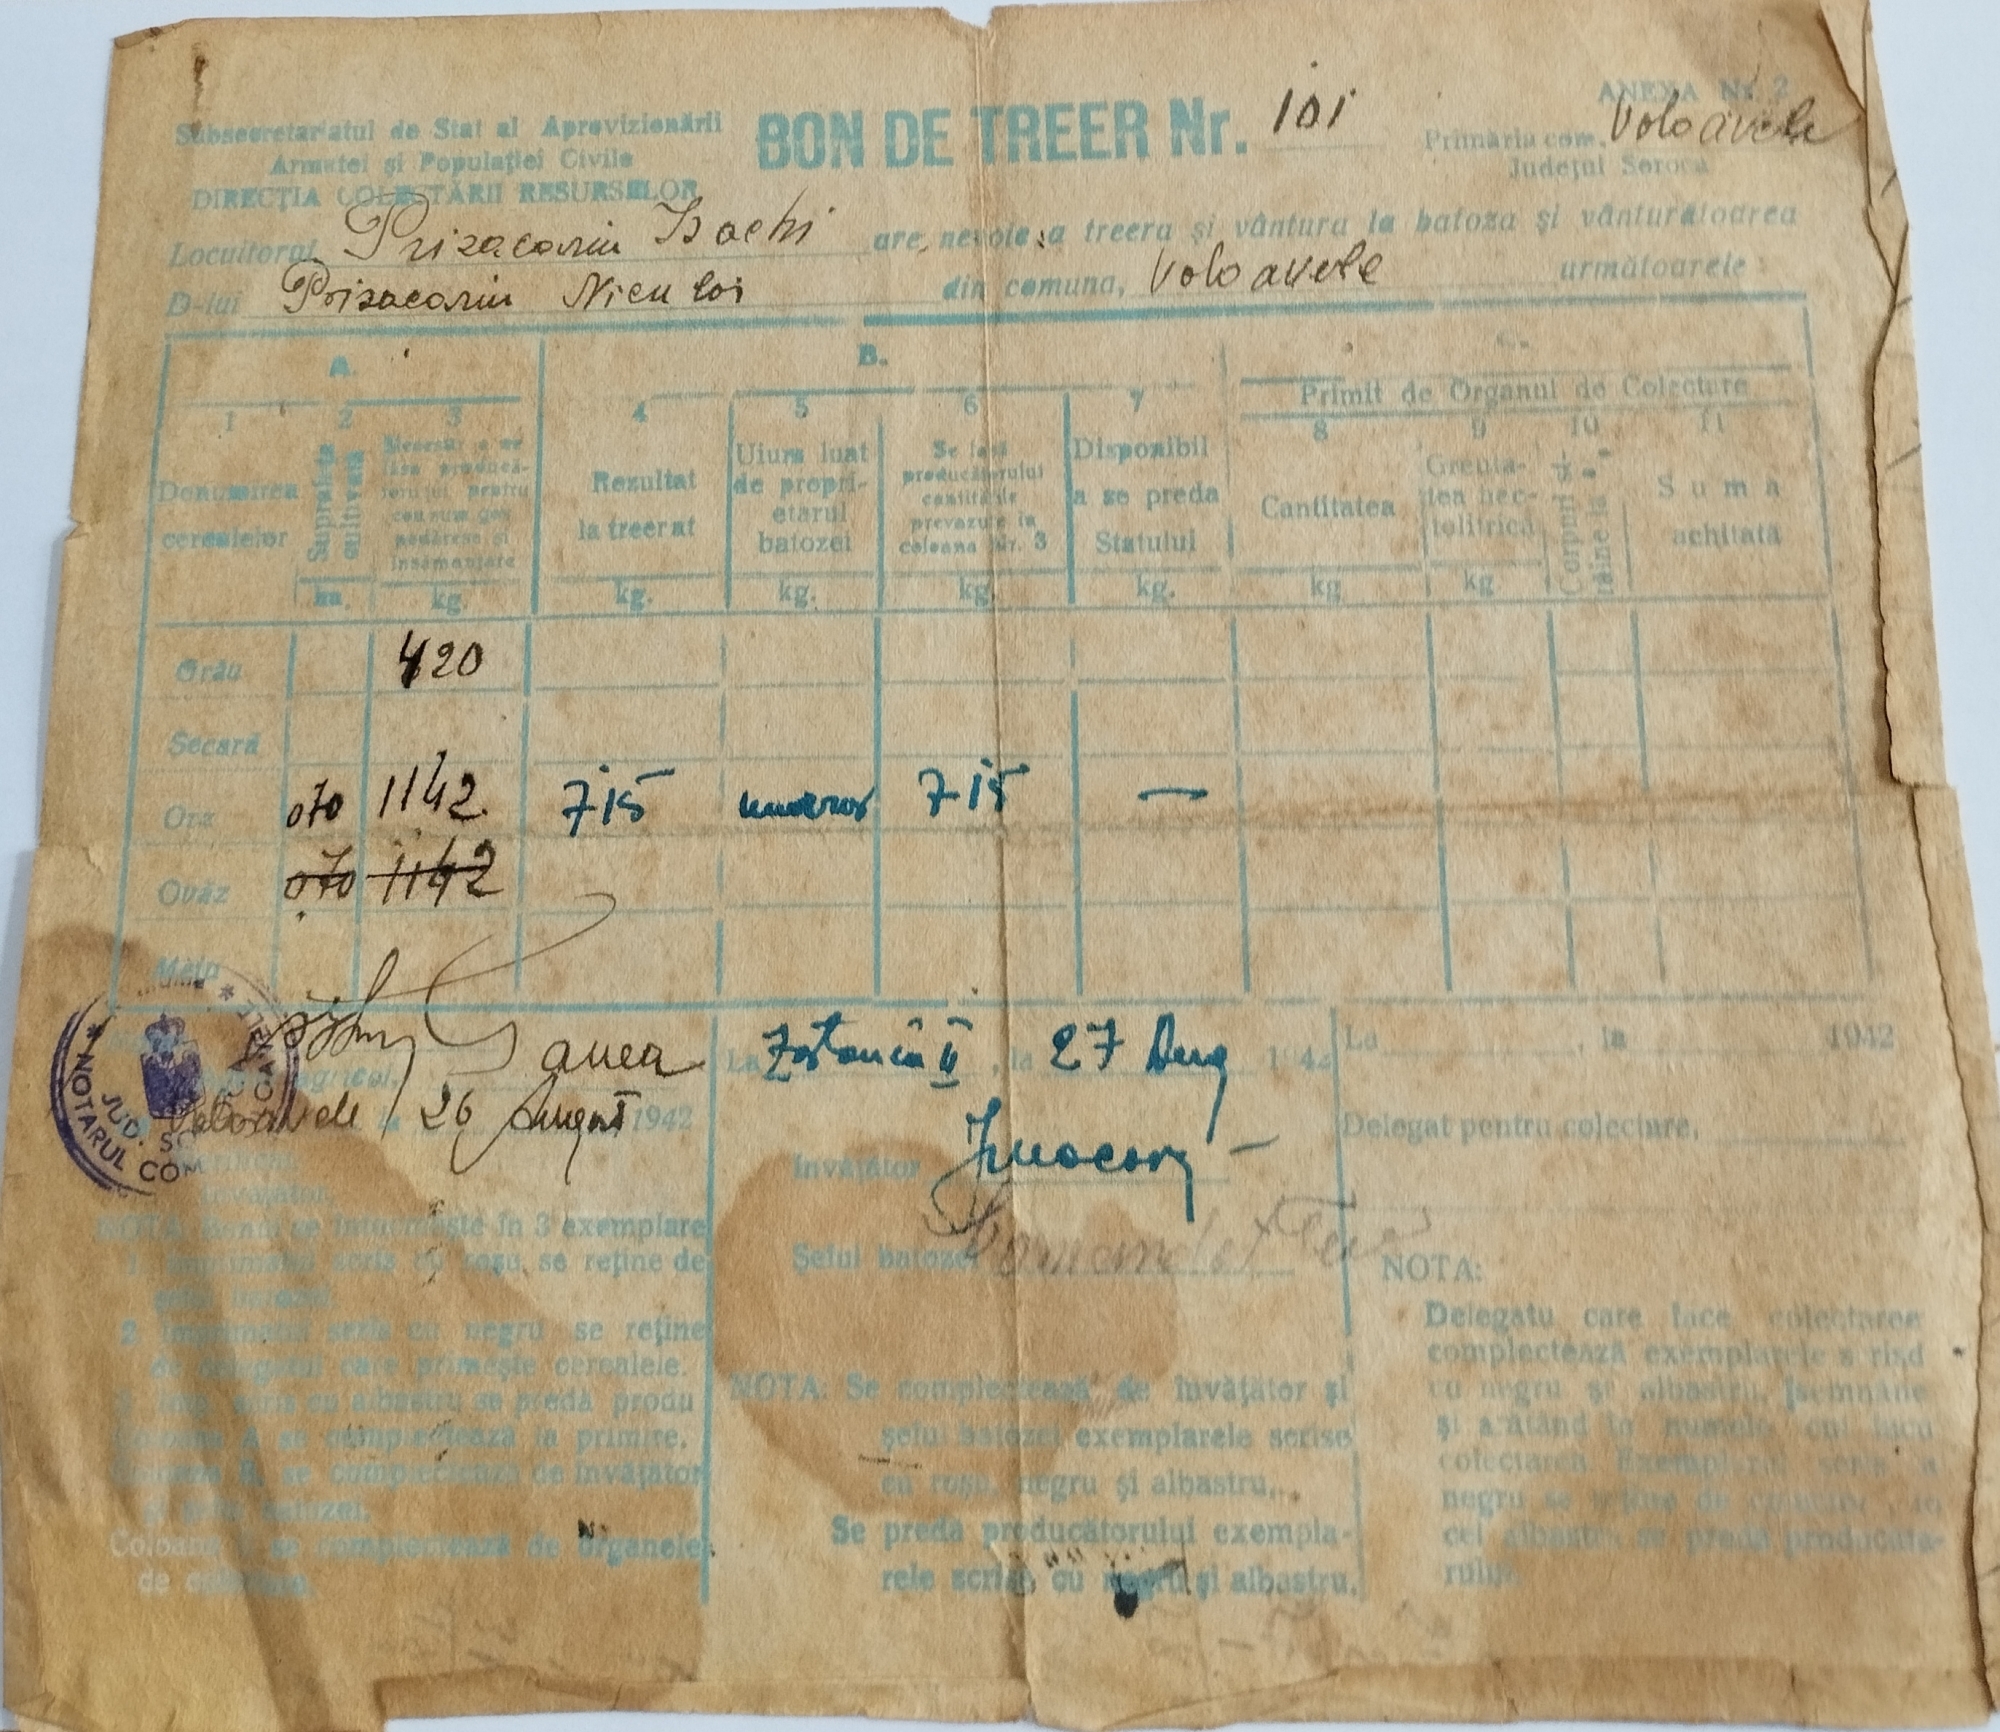 ANEXA Nr. 2
Subsecretariatul de Stat al Aprovizionării
Armatei și Populației Civile
DIRECȚIA COLECTĂRII RESURSELOR
BON DE TREER Nr. 101
Primăria com. Voloavele
Județul Soroca
Locuitorul Prisacariu Isachi are nevoie a treera și vântura la batoza și vânturătoarea
D-lui Prisacariu Niculai din comuna, Voloavele următoarele :
A. B. C.
Primit de Organul de Colectare
1 2 3 4 5 6 7 8 9 10 11
Denumirea cerealelor
Suprafața cultivată
Necesar a se lăsa producătorului pentru consum gospodăresc și însămânțare
Rezultat la treerat
Uium luat de proprietarul batozei
Se lasă producătorului cantitățile prevăzute în coloana Nr. 3
Disponibil a se preda Statului
Cantitatea
Greutatea hectolitrică
Corpuri străine la
Suma achitată
ha. kg. kg. kg. kg. kg. kg kg.
Grâu 420
Secară
Orz 070 1142 715 715 —
Ovăz 070 1142
Meiu
NOTARUL COM
JUD. SO
agricol, Ganea
Voloavele 26 August 1942
Învățător,
NOTA: Bonul se întocmește în 3 exemplare
1. Imprimatul scris cu roșu se reține de
șeful batozei.
2. Imprimatul scris cu negru se reține
de delegatul care primește cerealele.
3. Imp. scris cu albastru se predă produ
Coloana A se complectează la primire.
Coloana B. se complectează de învățător
și șeful batozei.
Coloana C se complectează de organele
de colectare.
La II, la 27 Aug 194
Învățător
Șeful batozei
NOTA: Se complectează de învățător și
șeful batozei exemplarele scrise
cu roșu, negru și albastru.
Se predă producătorului exempla-
rele scrise cu negru și albastru.
La , la 1942
Delegat pentru colectare,
NOTA:
Delegatu care face colectarea
complectează exemplarele scrise
cu negru și albastru, semnând
și arătând în numele cui facu
colectarea Exemplarul scris a
negru se reține de
cel albastru se predă producăto-
rului.